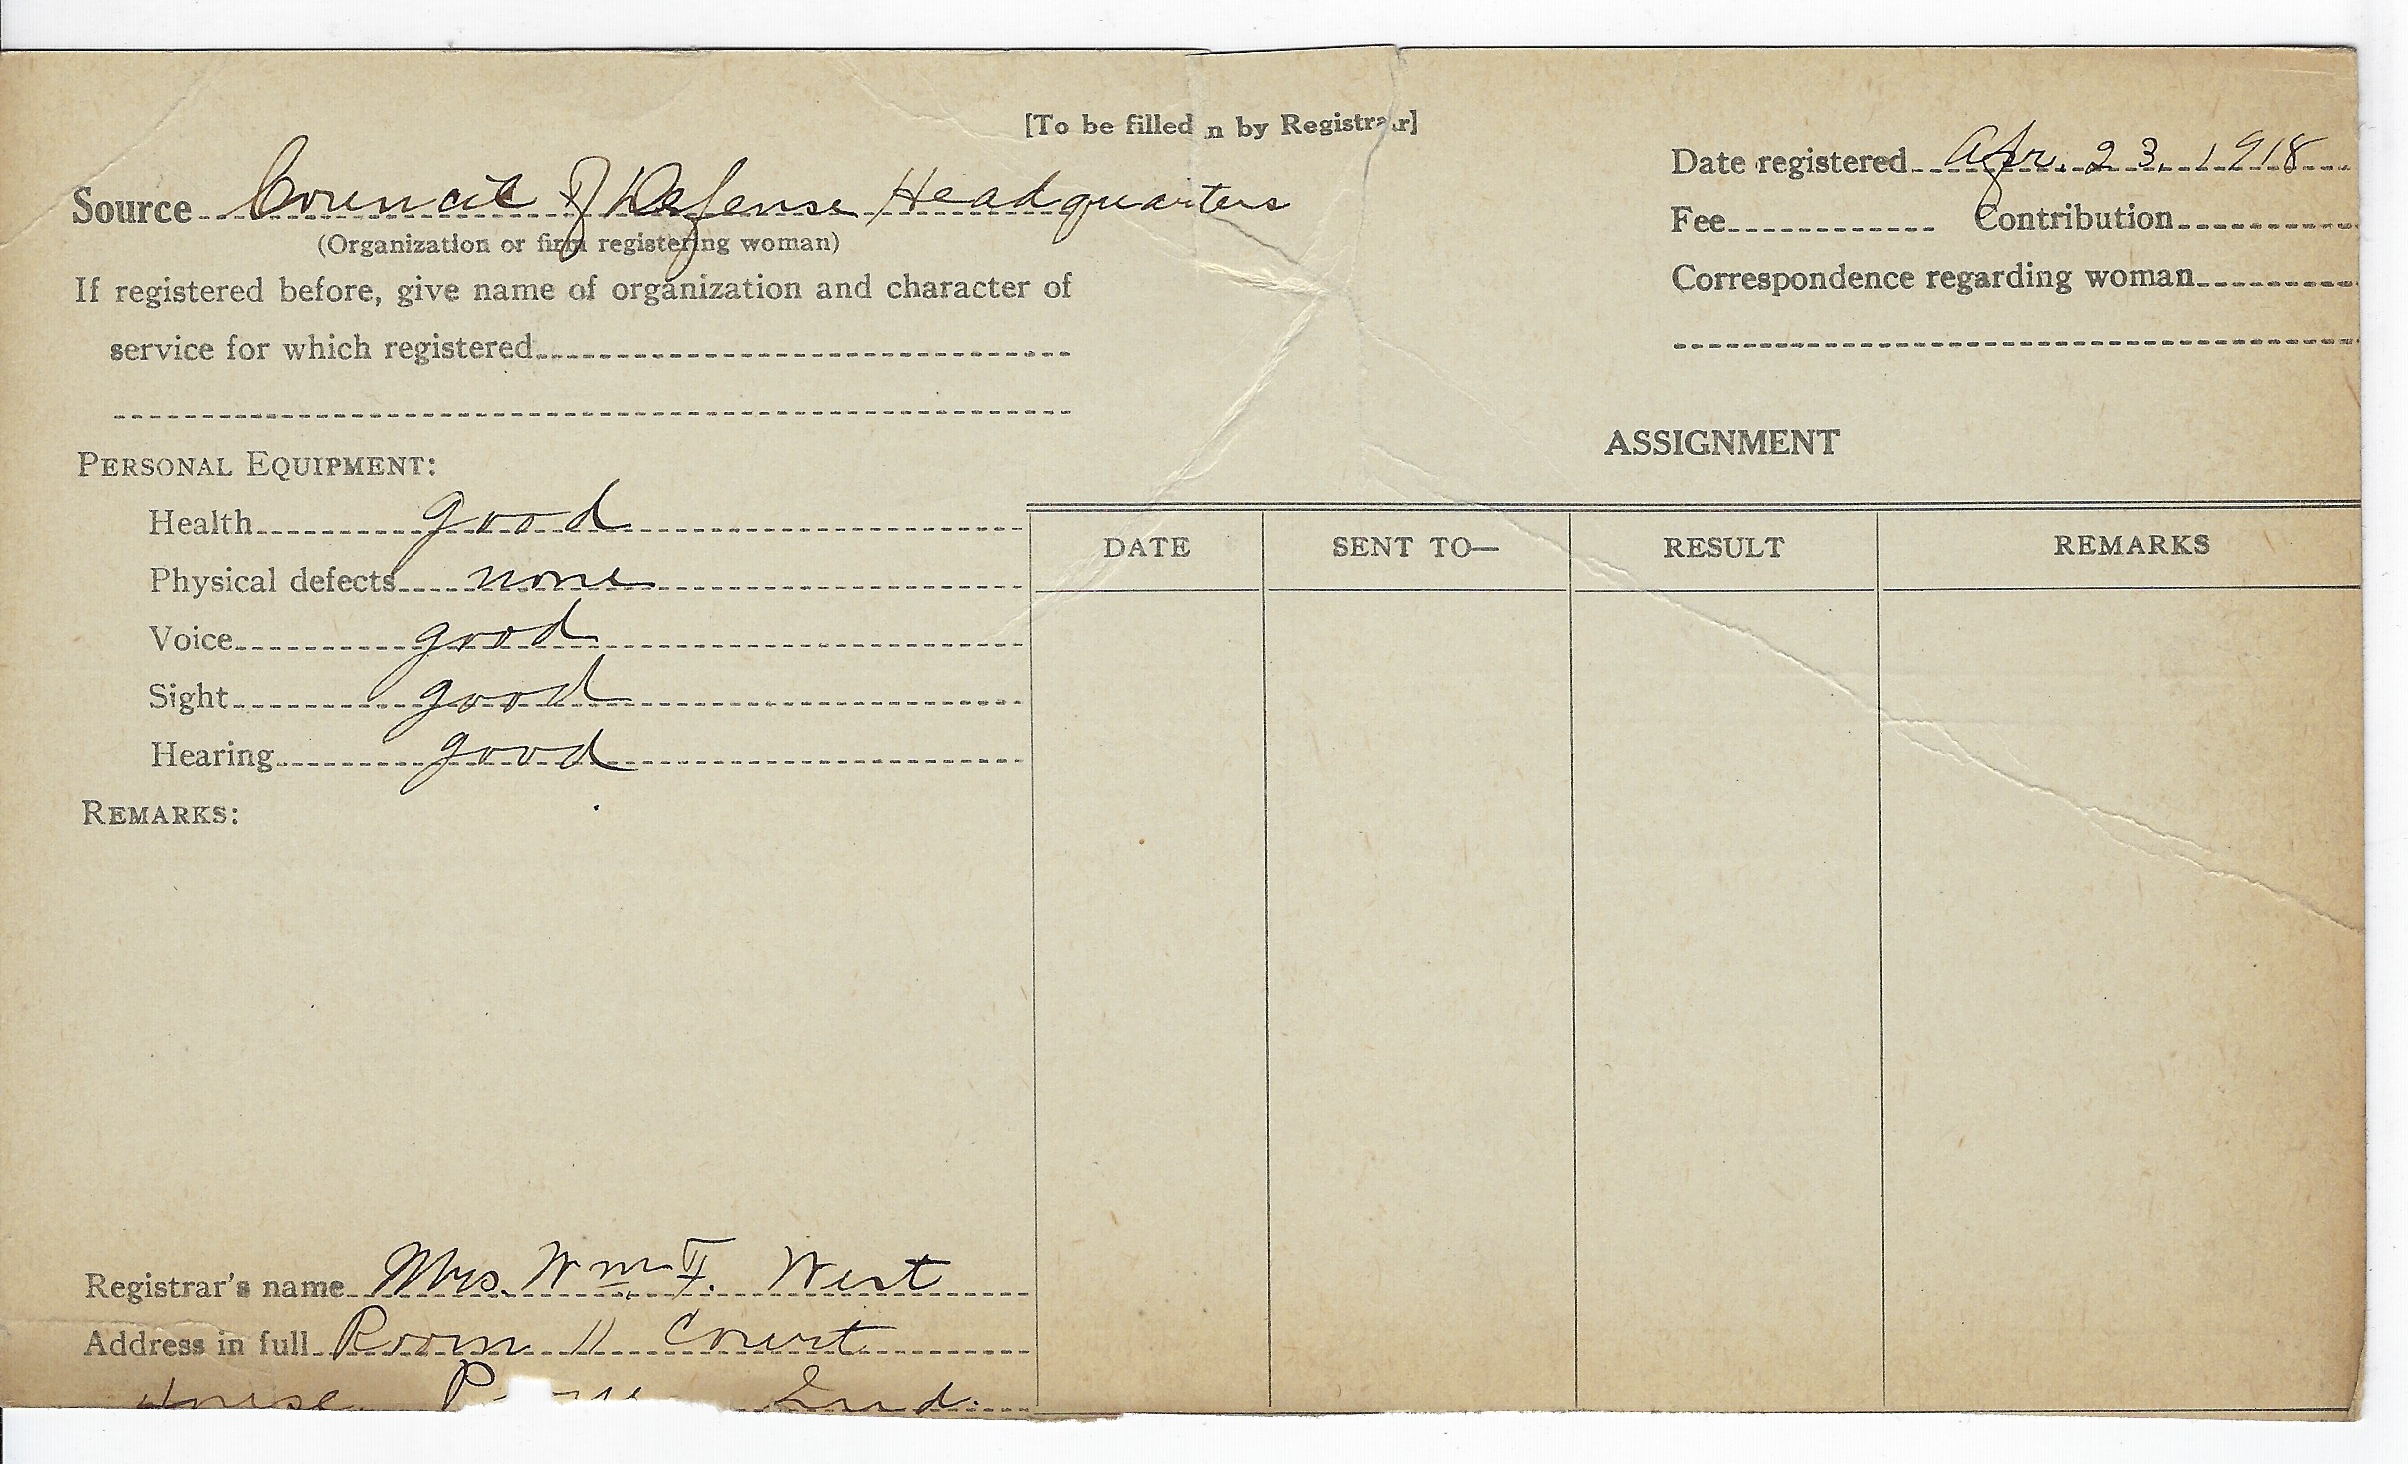 [To be filled n by Registrar]
Source Council of Defense Headquarters
(Organization or firm registering woman)
If registered before, give name of organization and character of
service for which registered
Date registered Apr. 23, 1918
Fee Contribution
Correspondence regarding woman
PERSONAL EQUIPMENT:
Health good
Physical defects none
Voice good
Sight good
Hearing good
REMARKS:
Registrar's name Mrs. Wm. F. West
Address in full Room 11 Court
House Ind.
ASSIGNMENT
DATE SENT TO— RESULT REMARKS